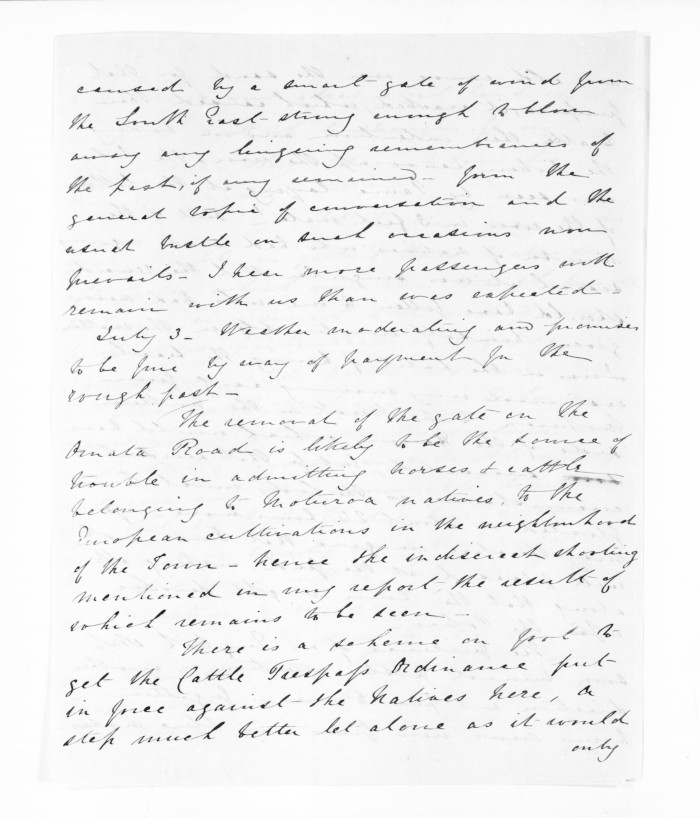 caused by a smart gale of wind from
the South East strong enough to blow
away any lingering remembrances of
the past, if any remained - from the
general topic of conversation and the
usual bustle on such occasions now
prevails - I hear more passengers will
remain with us than was expected
July 3 - Weather moderating and promises
to be fine by way of payment for the
rough past -
The removal of the gate on the
Omata Road is likely to be the source of
trouble in admitting horses & cattle
belonging to Moturoa natives, to the
European cultivations in the neighborhood
of the Town - hence the indiscreet shooting
mentioned in my report, the result of
which remains to be seen -
There is a scheme on foot to
get the Cattle Trespass Ordinance put
in force against the Natives here, a
step much better let alone as it would
only